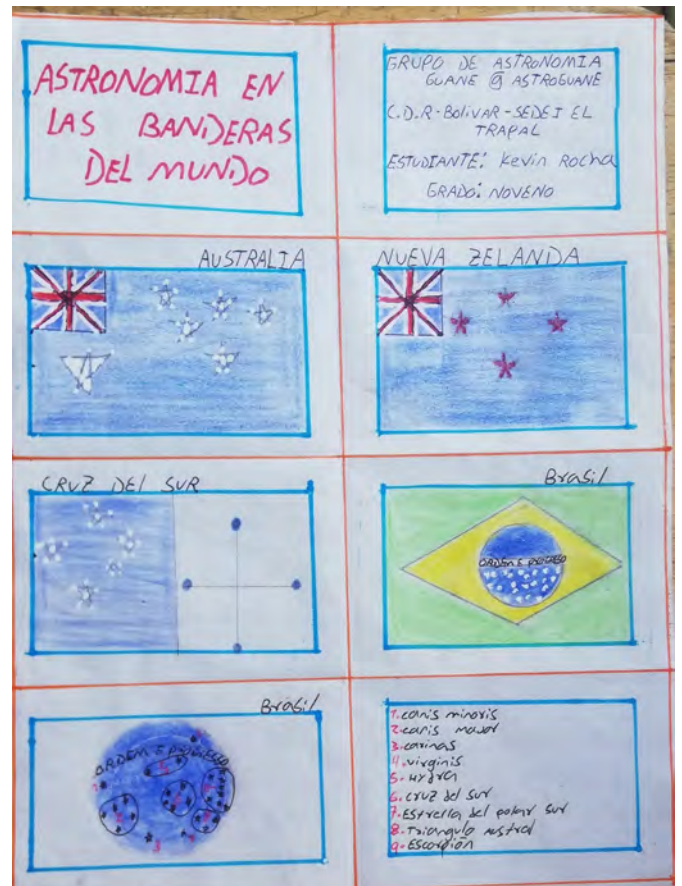 ASTRONOMIA EN
LAS BANDERAS
DEL MUNDO
GRUPO DE ASTRONOMIA
GUANE @ ASTROGUANE
C.D.R-Bolivar-SEDE I EL
TRAPAL
ESTUDIANTE: Kevin Rocha
GRADO: NOVENO
AUSTRALIA
NUEVA ZELANDA
CRUZ DEL SUR
Brasil
ORDEM E
Brasil
ORDEM E
1. canis minoris
2. canis mayor
3. carinas
4. virginis
5. Hydra
6. cruz del sur
7. Estrella del polar sur
8. Triangulo austral
9. Escorpión